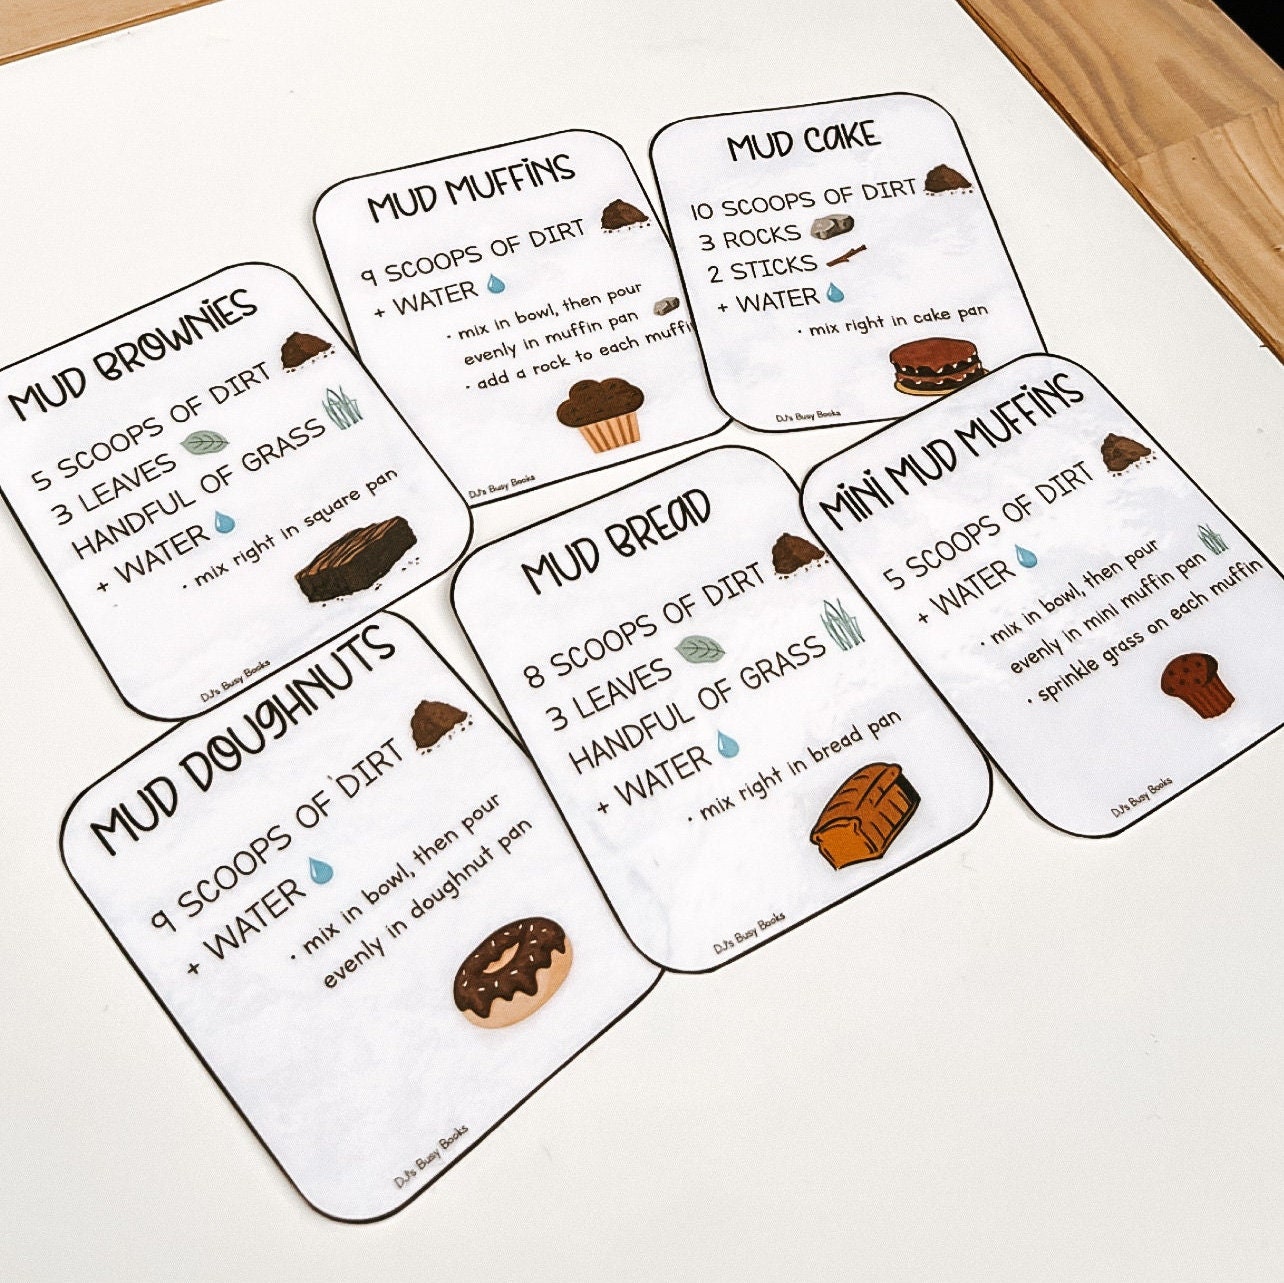 MUD BROWNIES
5 SCOOPS OF DIRT
3 LEAVES
HANDFUL OF GRASS
+ WATER
• mix right in square pan
DJ's Busy Books
MUD MUFFINS
9 SCOOPS OF DIRT
+ WATER
• mix in bowl, then pour
evenly in muffin pan
• add a rock to each muffin
DJ's Busy Books
MUD CAKE
10 SCOOPS OF DIRT
3 ROCKS
2 STICKS
+ WATER
• mix right in cake pan
DJ's Busy Books
MUD DOUGHNUTS
9 SCOOPS OF DIRT
+ WATER
• mix in bowl, then pour
evenly in doughnut pan
DJ's Busy Books
MUD BREAD
8 SCOOPS OF DIRT
3 LEAVES
HANDFUL OF GRASS
+ WATER
• mix right in bread pan
DJ's Busy Books
MINI MUD MUFFINS
5 SCOOPS OF DIRT
+ WATER
• mix in bowl, then pour
evenly in mini muffin pan
• sprinkle grass on each muffin
DJ's Busy Books